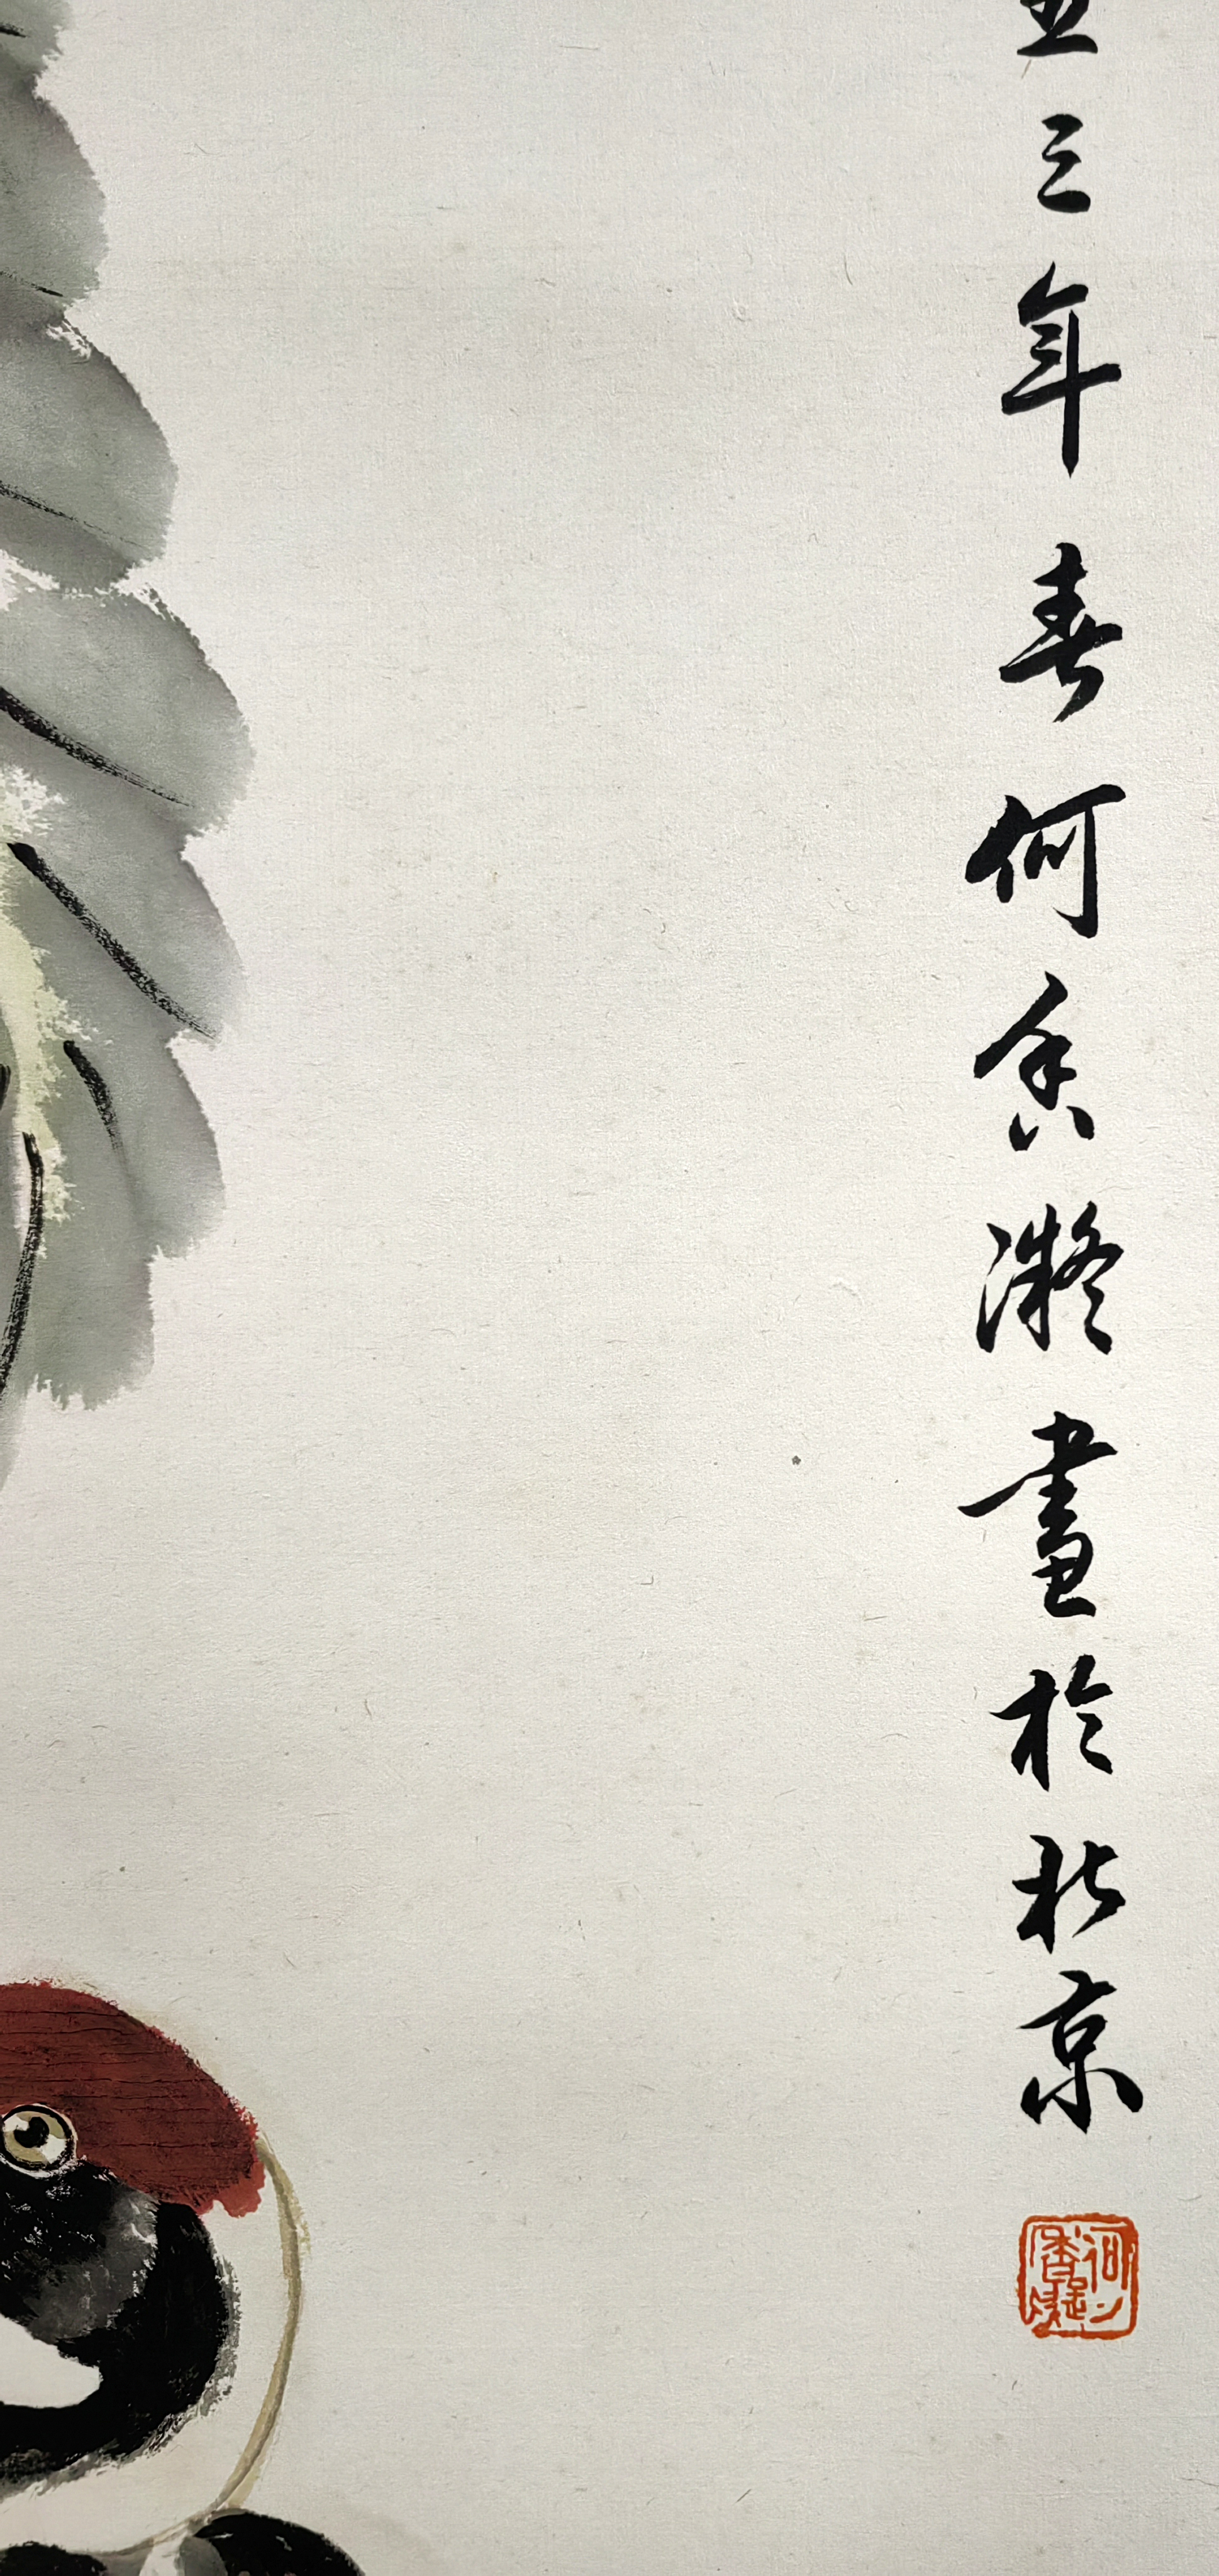 五三年春何香凝畫於北京
何香凝